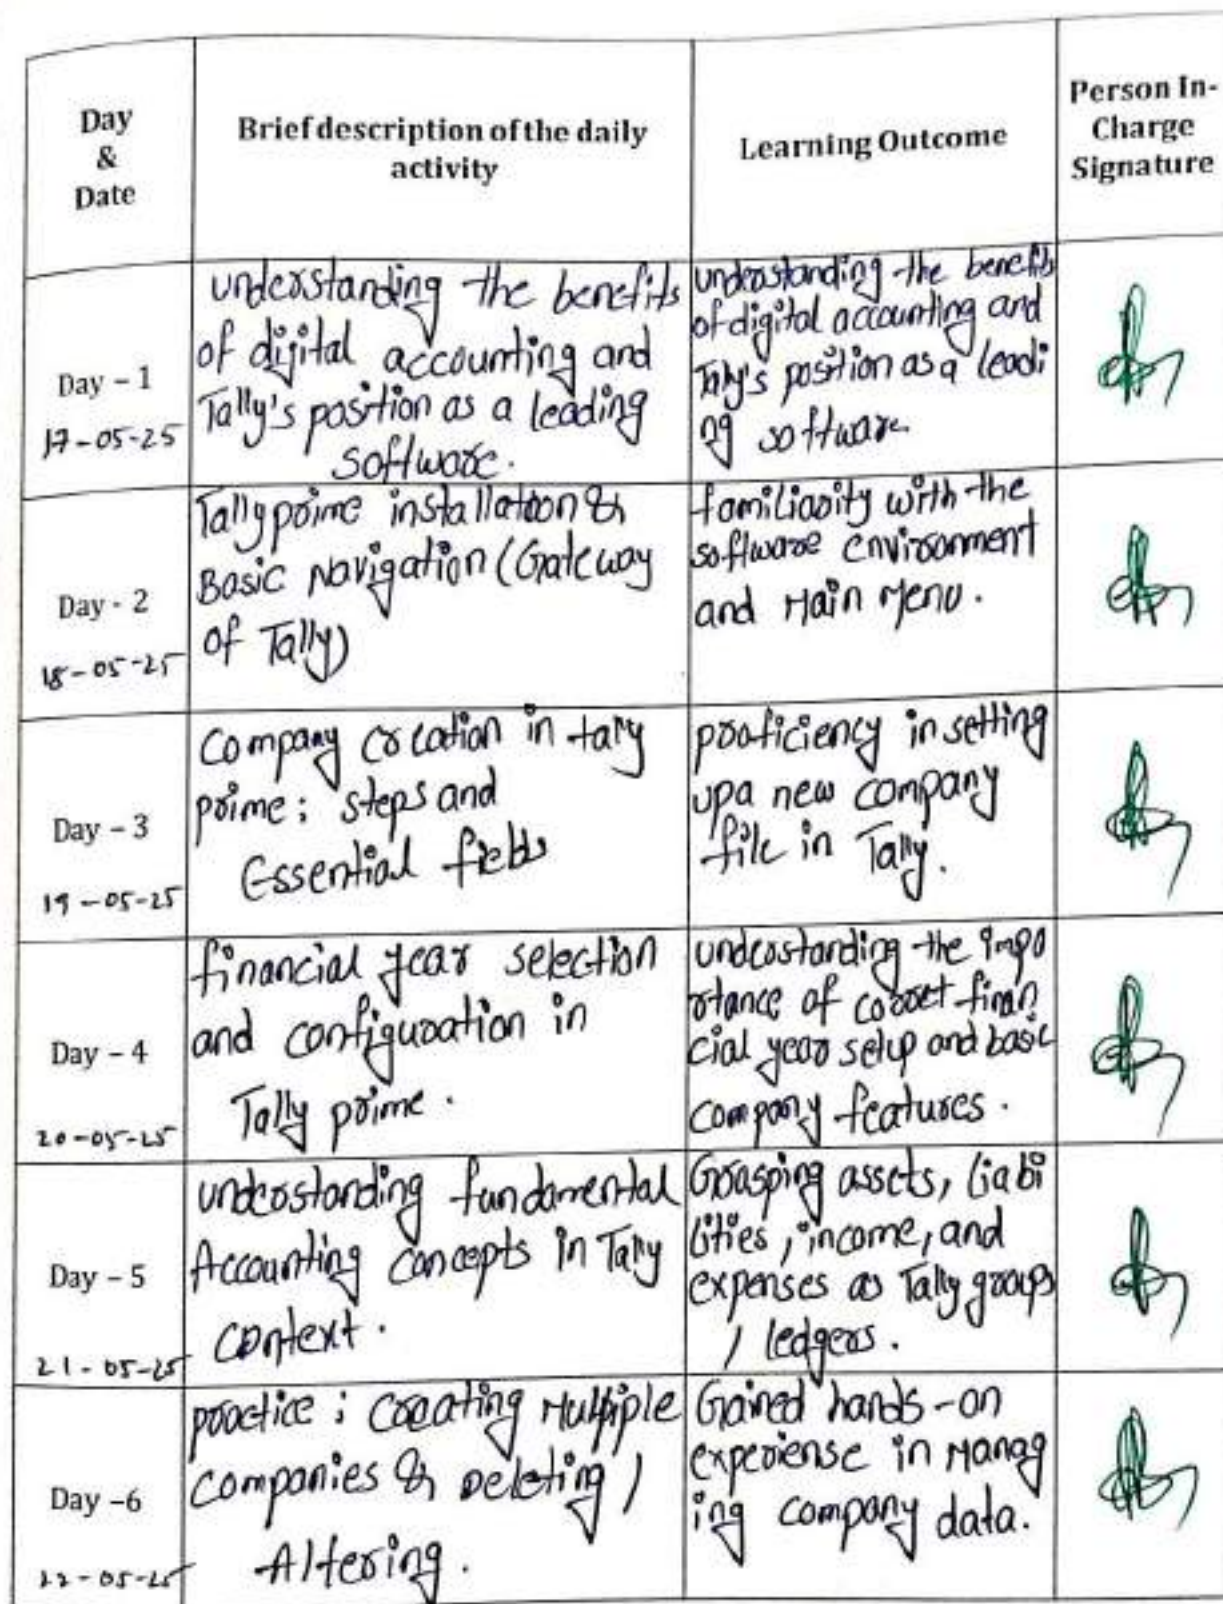 Day
&
Date
Brief description of the daily
activity
Learning Outcome
Person In-
Charge
Signature
Day - 1
17-05-25
understanding the benefits
of digital accounting and
Tally's position as a leading
software.
understanding the benefits
of digital accounting and
Tally's position as a leadi
ng software.
Day - 2
18-05-25
Tally prime installation &
Basic Navigation (Gateway
of Tally)
familiarity with the
software environment
and Main Menu.
Day - 3
19-05-25
Company creation in tally
prime : steps and
Essential fields
proficiency in setting
upa new company
file in Tally.
Day - 4
20-05-25
financial year selection
and configuration in
Tally prime.
understanding the impo
rtance of corret finan
cial year setup and basic
company features.
Day - 5
21-05-25
understanding fundamental
Accounting concepts in Tally
context.
Grasping assets, liabi
lities, income, and
expenses as Tally groups
/ ledgers.
Day -6
22-05-25
practice : creating Multiple
companies & Deleting /
Altering.
Gained hands-on
experiense in Manag
ing company data.